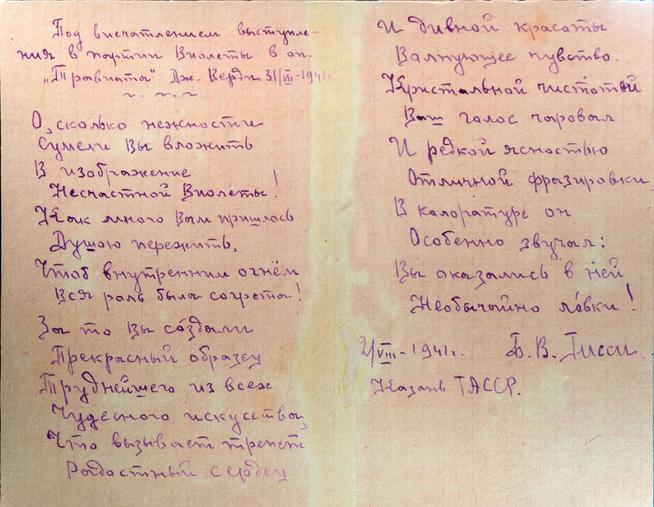 Под впечатлением выступле-
ния в партии Виолеты в оп.
„Травиата" Дж. Верди 31/VII-1941г.
О, сколько нежности
Сумели Вы вложить
В изображение
Несчастной Виолеты!
Как много Вам пришлось
Душою пережить,
Чтоб внутренним огнём
Вся роль была согрета!
За то Вы создали
Прекрасный образец
Труднейшего из всех
Чудесного искусства,
Что вызывает трепет
Радостный сердец
И дивной красоты
Валнующее чувство.
Кристальной чистотой
Ваш голос чаровал
И редкой ясностью
Отличной фразировки,
В калоратуре он
Особенно звучал:
Вы оказались в ней
Необычайно ловки!
2/VIII-1941г. Б. В. Гисси.
Казань ТАССР.